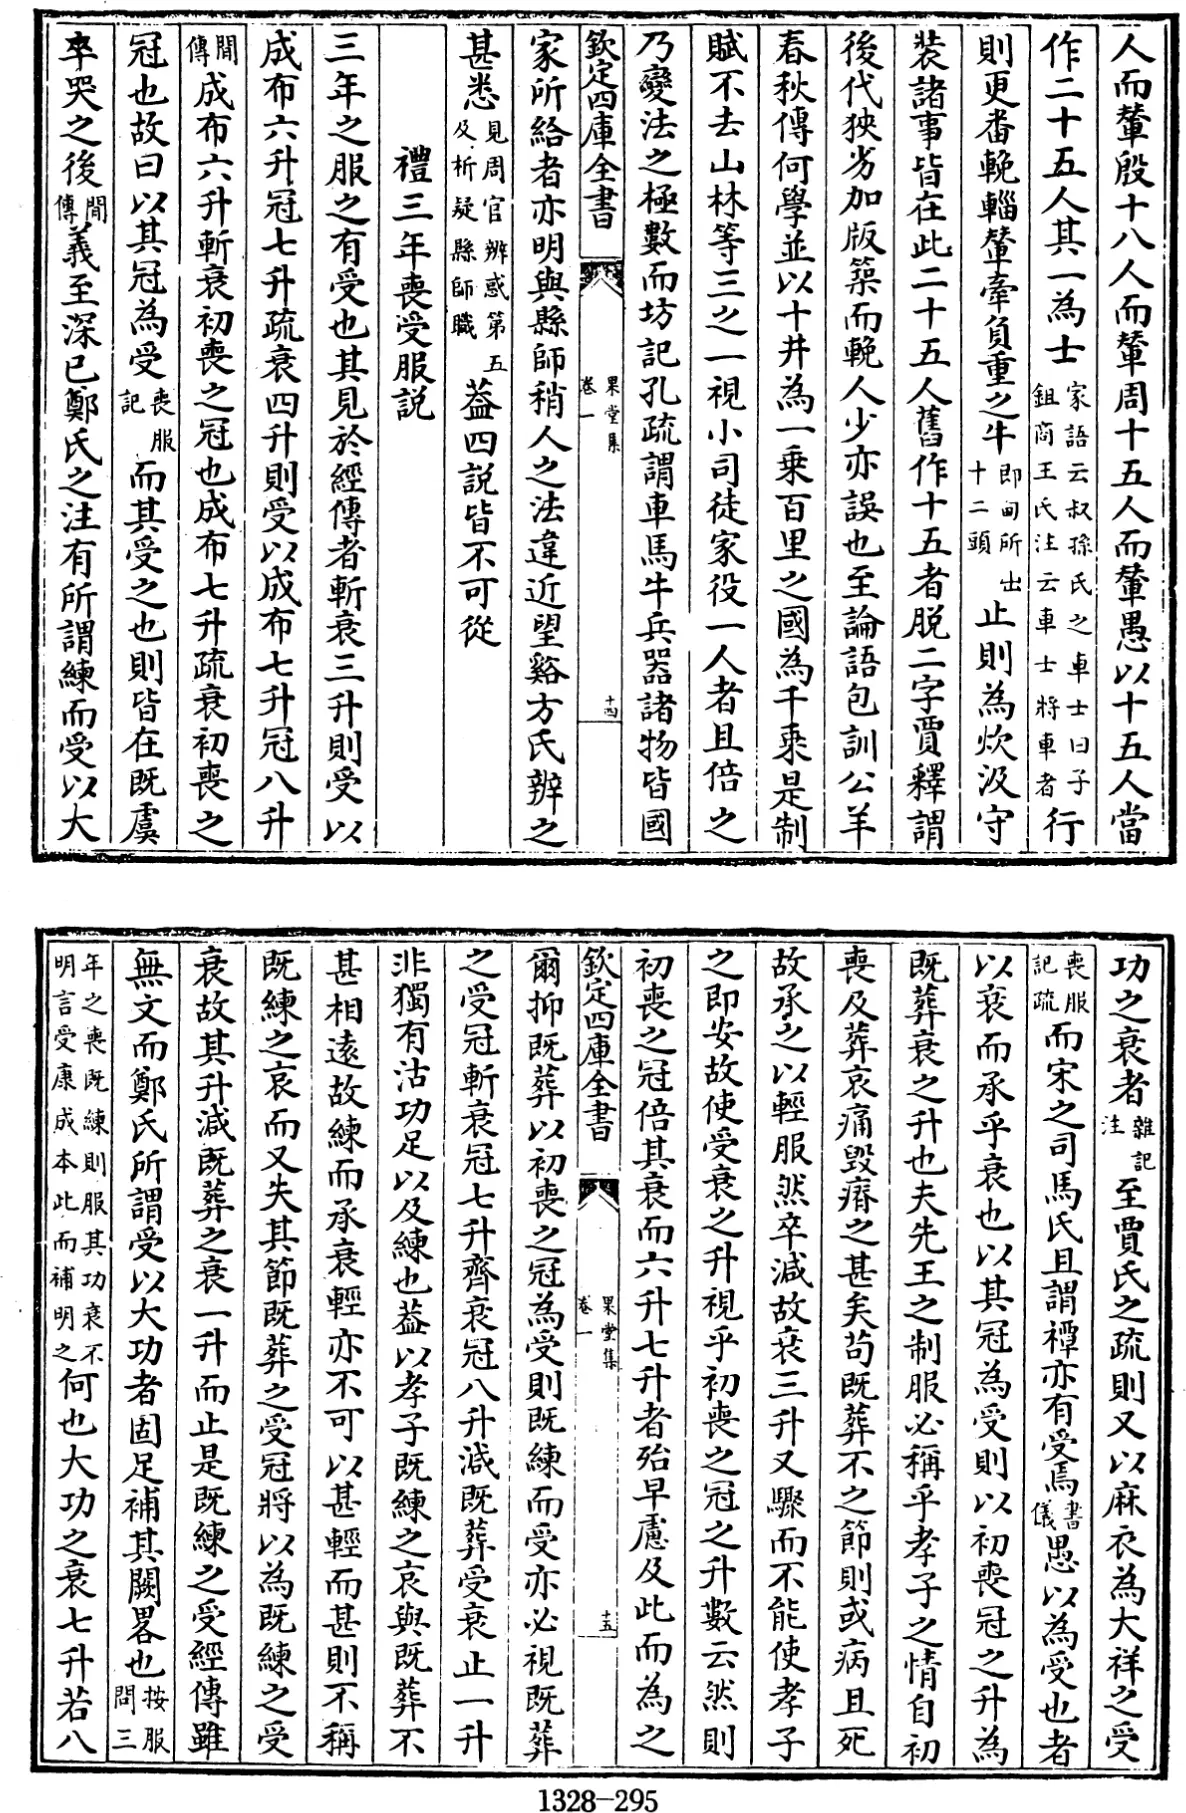 人而輦殷十八人而輦周十五人而輦愚以十五人當
作二十五人其一為士家語云叔孫氏之車士曰子鉏商王氏注云車士將車者行
則更畨輓輜輦牽負重之牛即甸所出十二頭止則為炊汲守
裝諸事皆在此二十五人舊作十五者脫二字賈釋謂
後代狹劣加版築而輓人少亦誤也至論語包訓公羊
春秋傳何學並以十井為一乘百里之國為千乘是制
賦不去山林等三之一視小司徒家役一人者且倍之
乃變法之極數而坊記孔疏謂車馬牛兵器諸物皆國
欽定四庫全書 果堂集卷一 十四
家所給者亦明與縣師稍人之法違近望谿方氏辨之
甚悉見周官辨惑第五及析疑縣師職葢四説皆不可從
禮三年喪受服説
三年之服之有受也其見於經傳者斬衰三升則受以
成布六升冠七升疏衰四升則受以成布七升冠八升
間傳成布六升斬衰初喪之冠也成布七升疏衰初喪之
冠也故曰以其冠為受喪服記而其受之也則皆在既虞
卒哭之後間傳義至深已鄭氏之注有所謂練而受以大
功之衰者雜記注至賈氏之疏則又以麻衣為大祥之受
喪服記疏而宋之司馬氏且謂禫亦有受焉書儀愚以為受也者
以衰而承乎衰也以其冠為受則以初喪冠之升為
既葬衰之升也夫先王之制服必稱乎孝子之情自初
喪及葬哀痛毀瘠之甚矣茍既葬不之節則或病且死
故承之以輕服然卒減故衰三升又驟而不能使孝子
之即安故使受衰之升視乎初喪之冠之升數云然則
初喪之冠倍其衰而六升七升者殆早慮及此而為之
欽定四庫全書 果堂集卷一 十五
爾抑既葬以初喪之冠為受則既練而受亦必視既葬
之受冠斬衰冠七升齊衰冠八升減既葬受衰止一升
非獨有沽功足以及練也葢以孝子既練之哀與既葬不
甚相遠故練而承衰輕亦不可以甚輕而甚則不稱
既練之哀而又失其節既葬之受冠將以為既練之受
衰故其升減既葬之衰一升而止是既練之受經傳雖
無文而鄭氏所謂受以大功者固足補其闕畧也按服問三
年之喪既練則服其功衰不明言受康成本此而補明之何也大功之衰七升若八